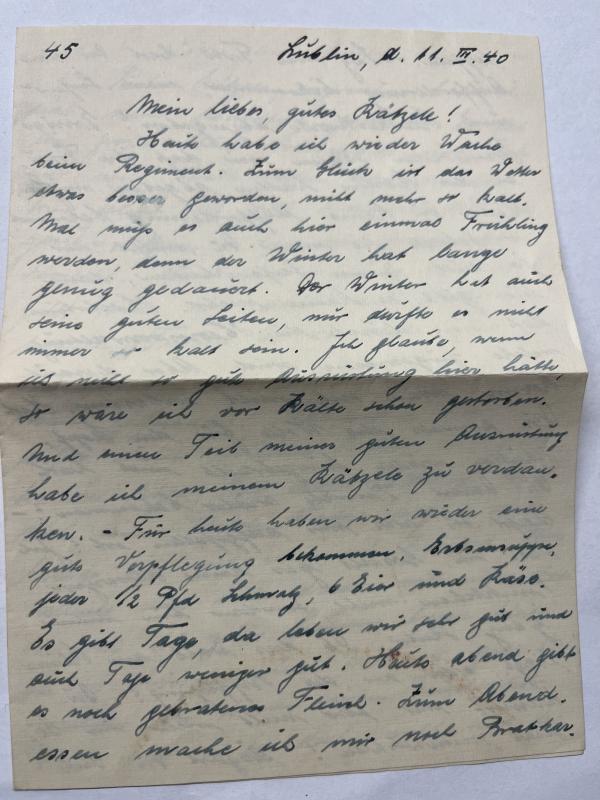 45 Lublin, d. 11. III. 40
Mein liebes, gutes Kätzele!
Heute habe ich wieder Wache
beim Regiment. Zum Glück ist das Wetter
etwas besser geworden, nicht mehr so kalt.
Mal muß es auch hier einmal Frühling
werden, denn der Winter hat lange
genug gedauert. Der Winter hat auch
seine guten Seiten, nur dürfte es nicht
immer so kalt sein. Ich glaube, wenn
ich nicht so gute Ausrüstung hier hätte,
so wäre ich vor Kälte schon gestorben.
Und einen Teil meiner guten Ausrüstung
habe ich meinem Kätzele zu verdan-
ken. - Für heute haben wir wieder eine
gute Verpflegung bekommen, Erbsensuppe,
jeder 1/2 Pfd Schmalz, 6 Eier und Käse.
Es gibt Tage, da leben wir sehr gut und
auch Tage weniger gut. Heute abend gibt
es noch gebratenes Fleisch. Zum Abend-
essen mache ich mir noch Bratkar-